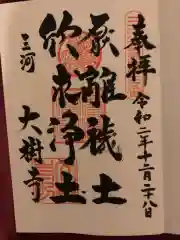 奉拝
令和二年十二月二十八日
厭離穢土
欣求浄土
三河
大樹寺